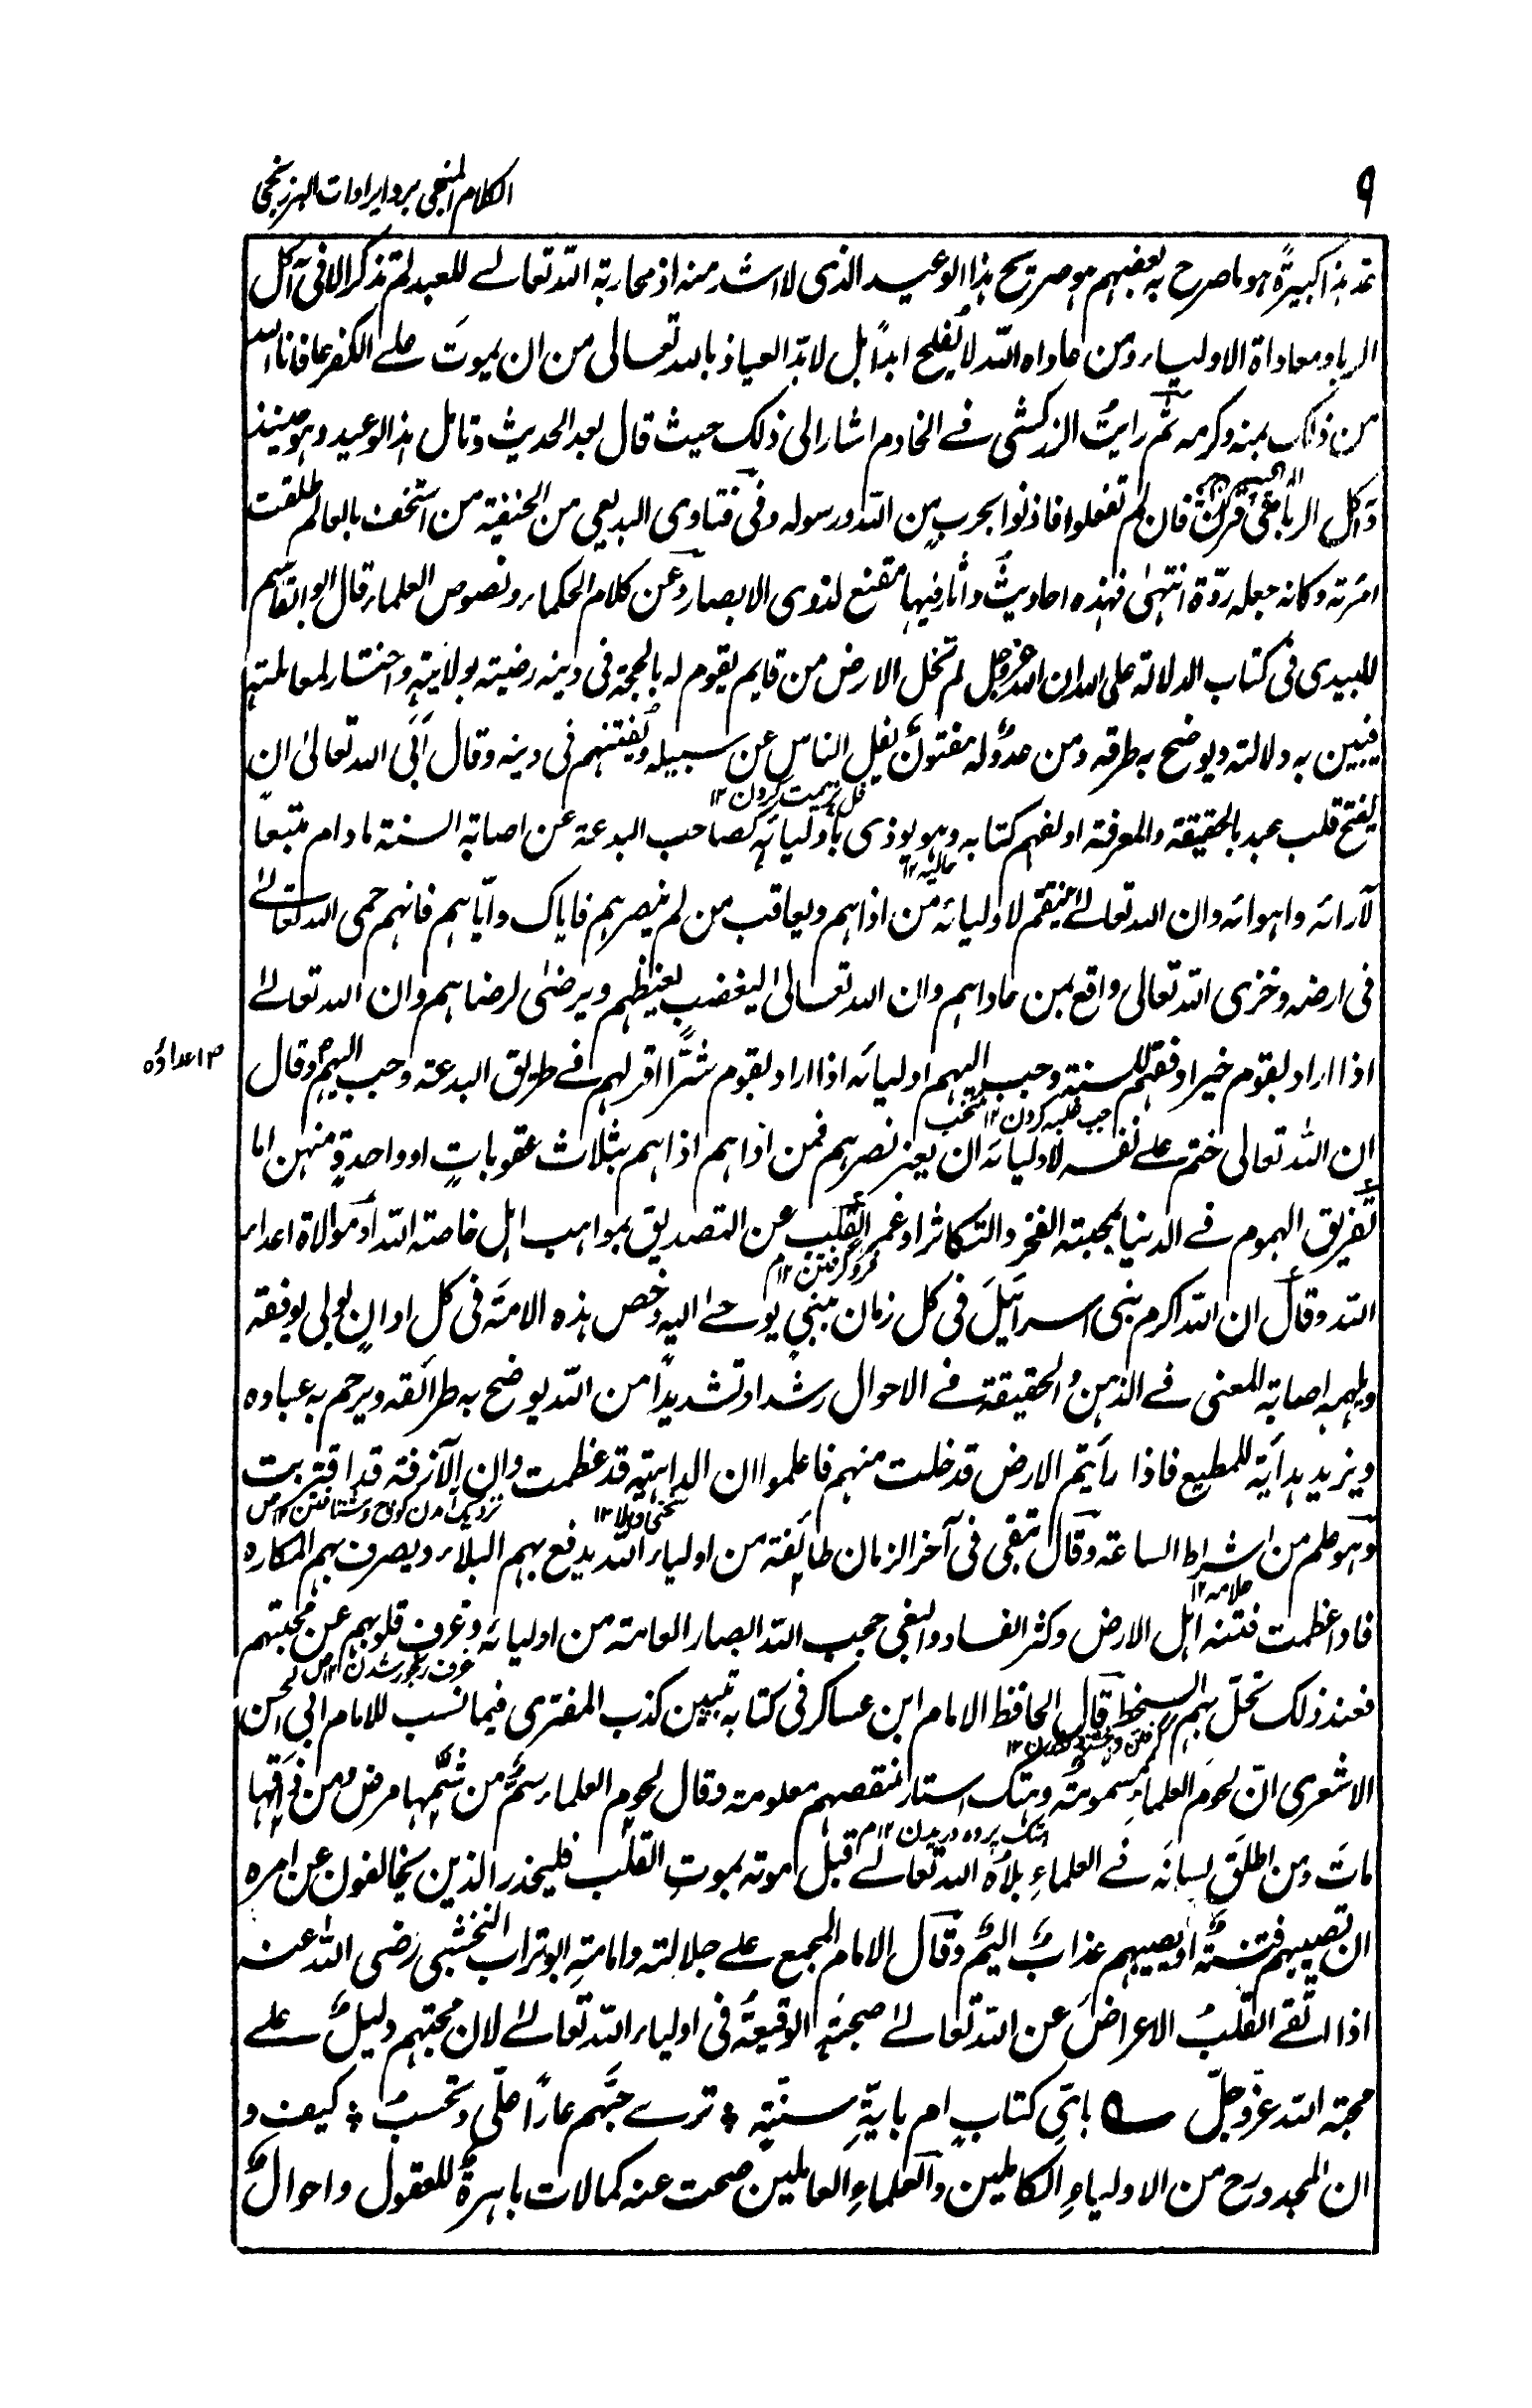 ٩
الكلام المنجى برد ايرادات البرزنجى
عد هذا كبيرةً هو ما صرح به بعضهم هو صريح هذا الوعيد الذى لا اشد منه اذ محاربة الله تعالے للعبد لم تذكر الا فى آكل
الربا و معاداة الاولياء ومن عاداه الله لا يُفلح ابداً بل لا بدّ العياذ بالله تعالى من ان يموتَ علے الكفر عافانا الله
من ذلك بمنه وكرمه ثم رايتُ الزركشى فے الخادم اشار الى ذلك حيث قال بعد الحديث وتامل هذا الوعيد وهو حينئذ
وآكل الربا فى قرنٍ فان لم تفعلوا فاذنوا بحربٍ من الله ورسوله وفى فتاوى البديعى من الحنفية من استخف بالعالم طلقت
امرءته وكانه جعله ردّة انتهىٰ فهذه احاديثُ وآثارٌ فيها مقنع لذوى الابصار وعن كلام الحكماء ونصوص العلماء قال ابو القاسم
للبيدى فى كتاب الدلالة على الله ان الله عز وجل لم تخل الارض من قايم يقوم له بالحجة فى دينه رضيته بولايته واختار لمعاملته
فيبين به دلالته ويوضح به طرقه ومن عدوٌّ له مفتونٌ يفل الناس عن سبيله ويُفتنهم فى دينه وقال اَبَى الله تعالىٰ ان
فل هزيمت كردن ١٢
يفتح قلب عبد بالحقيقة والمعرفة او لفهم كتابه وهو يوذى باوليائه كصاحب البدعة عن اصابة السنة مادام متبعاً
حاليه ١٢
لآرائه واهوائه وان الله تعالےٰ ينتقم لاوليائه من اذاهم ويعاقب من لم ينصرهم فاياك وايّاهم فانهم حمى الله تعالےٰ
فى ارضه وخزى الله تعالى واقع بمن عاداهم وان الله تعالىٰ ليغضب لغيظهم ويرضىٰ لرضاهم وان الله تعالےٰ
اذا اراد بقوم خيرا وفقهم للسنته وحبب اليهم اوليائه اذا اراد بقوم شرًّا اقر لهم فے طريق البدعة وحبب اليهم ؐ وقال
ؐ اعداؤه
ان الله تعالى ختم علے نفسه لاوليائه ان يعز نصرهم فمن اذاهم اذاهم بثلاث عقوباتٍ او واحدةٍ منهن اما
تفريق الهموم فے الدنيا بمحبته الفخر والتكاثر او غمر القلب عن التصديق بمواهب اهل خاصة الله او موالاة اعداء
فرو گرفتن ١٢م
الله وقال ان الله اكرم بنى اسرائيلَ فى كل زمان بنبىٍ يوحےٰ اليه وخص هذه الامة فى كل اوانٍ بولى يوفقه
ويلهمه اصابة للمعنى فے الذهن والحقيقة فے الاحوال رشدا وتشديداً من الله يوضح به طرائقه ويرحم به عباده
ويزيد هدايَة للمطيع فاذا رأيتم الارض قد خلت منهم فاعلموا ان الداهية قد عظمت وان الآزفة قد اقتربت
سختى وبلا ١٢
نزديك آمدن كوچ وشتافتن ١٢ص
وهو علم من اشراط الساعة وقال تبقى فى آخر الزمان طائفة من اولياء الله يدفع بهم البلاء ويصرف بهم المكاره
علامه ١٢
فاذا عظمت فتنه اهل الارض وكثر الفساد والبغى حجب الله ابصار العامة من اوليائه وتعرف قلوبهم عن محبتهم
فعند ذلك تحلّ بهم السخط قال الحافظ الامام ابن عساكر فى كتابه تبيين كذب المفترى فيما نسب للامام ابى الحسن
الاشعرى انّ لحومَ العلماءِ مسمومةٌ وهتك استار منقصهم معلومته وقال لحوم العلماء سمٌّ من شمّها مرض ومن ذاقها
هتك پرده دريدن ١٢م
ماتَ ومن اطلقَ لسانَه فے العلماءِ بلاه الله تعالےٰ قبل موته بموتِ القلب فليحذر الذين يخالفون عن امره
ان تصيبهم فتنةٌ او يصيبهم عذابٌ اليمٌ وقال الامام المجمع علے جلالته وامامتهِ ابو تراب النخشبى رضى الله عنه
اذا القے القلبُ الاعراضَ عن الله تعالےٰ صحبتهُ الوقيعةُ فى اولياء الله تعالےٰ لان محبتهم دليلٌ علے
محبة الله عزّ وجلّ ؎ باىِّ كتابٍ ام بايّةِ سنّةٍ ؞ ترے حبَّهم عارًا علّى وتحسبُ ؞ كيف و
ان الممدوح من الاولياءِ الكاملين والعلماءِ العاملين صحت عنه كمالات باهرةٌ للعقول واحوالٌ